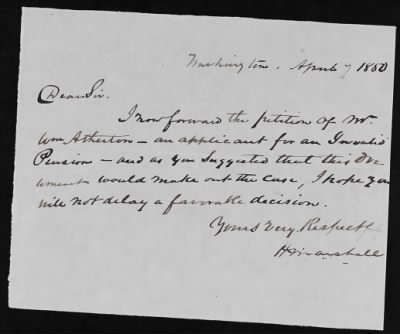 Washington, April 7 1850
Dear Sir.
I now forward the petition of Mr.
Wm Atherton - an applicant for an Invalid
Pension - and as you suggested that this Doc
ument would make out the case, I hope you
will not delay a favorable decision.
Yours Very Respectfully
H Marshall